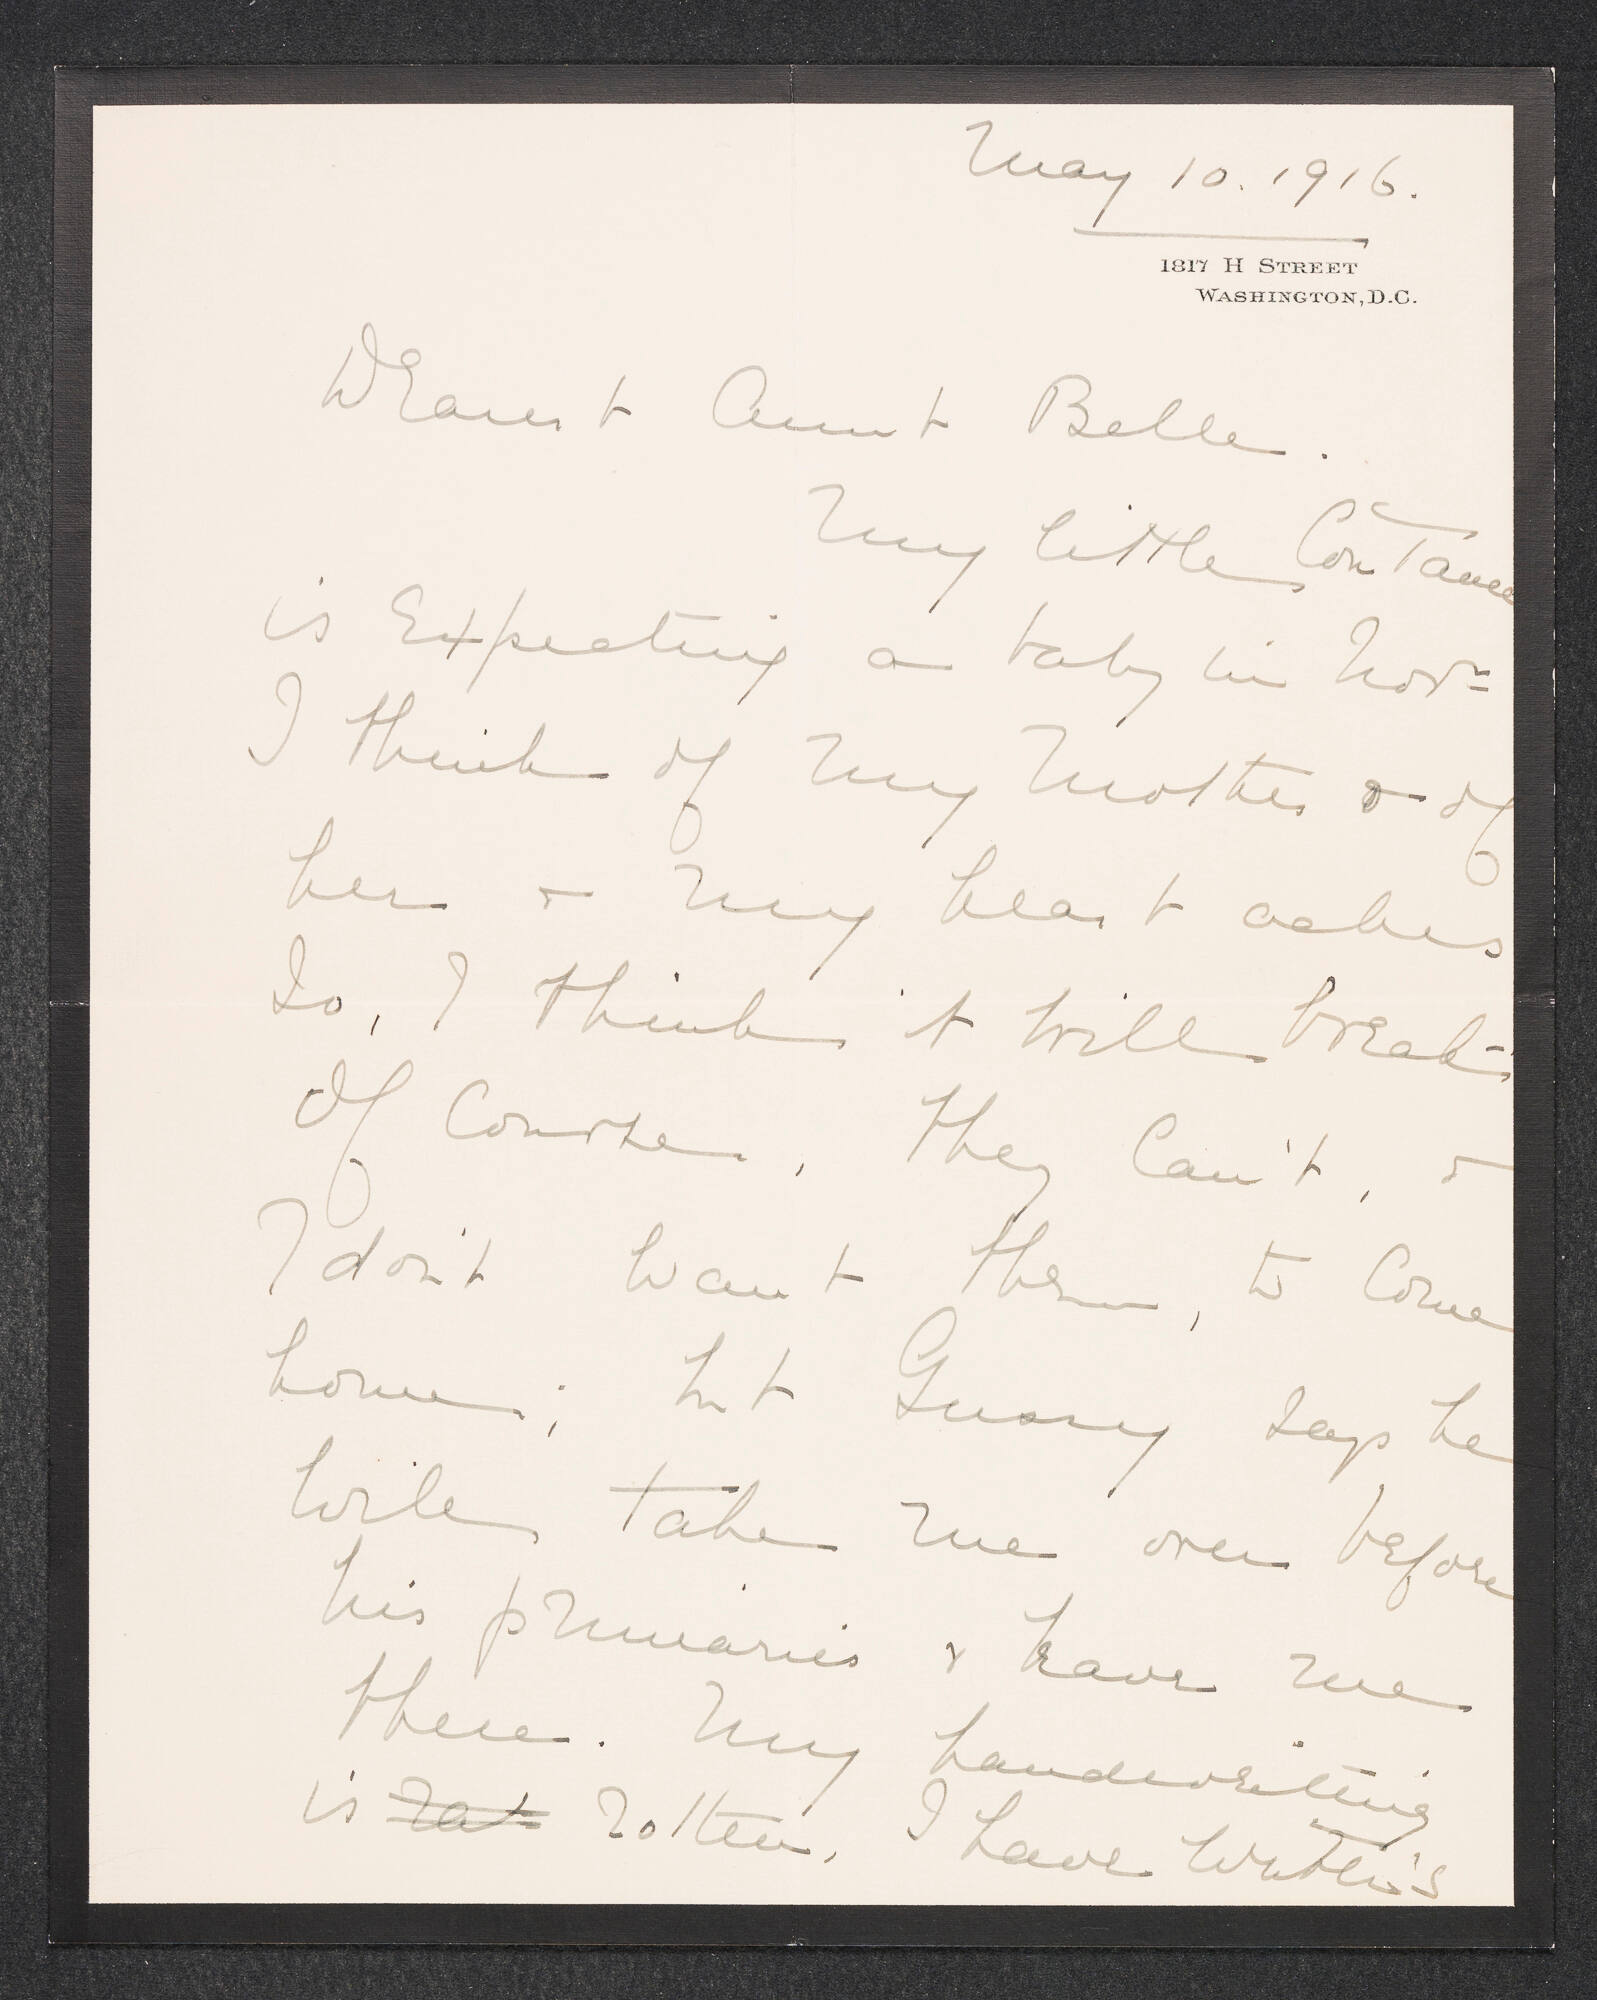 May 10. 1916.
1817 H STREET
WASHINGTON, D.C.
Dearest Aunt Belle.
My little Constance
is Expecting a baby in Nov=
I think of my mother & of
her & my heart aches
so, I think it will break-
Of Course, they Can't, &
I don't want them, to Come
home; but Gussy says he
will take me over before
his primaries & leave me
there. My handwriting
is rot rotten. I have writer's